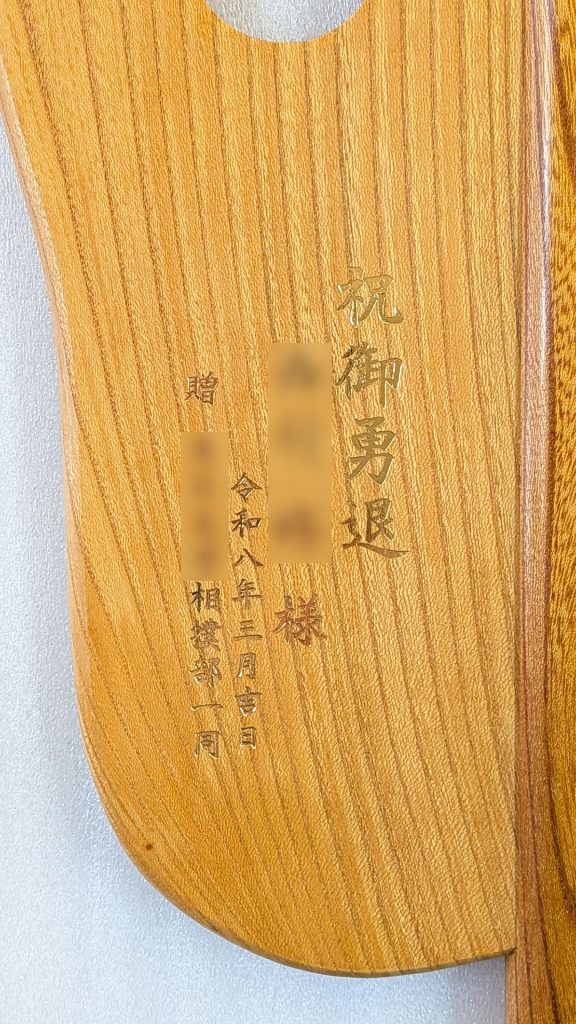 祝御勇退
様
令和八年三月吉日
贈 相撲部一同